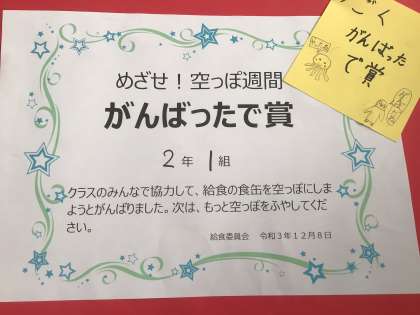 めざせ！空っぽ週間
がんばったで賞
2年 1組
クラスのみんなで協力して、給食の食缶を空っぽにしま
ようとがんばりました。次は、もっと空っぽをふやしてくだ
さい。
給食委員会 令和3年12月8日
ごく
がんばった
で賞